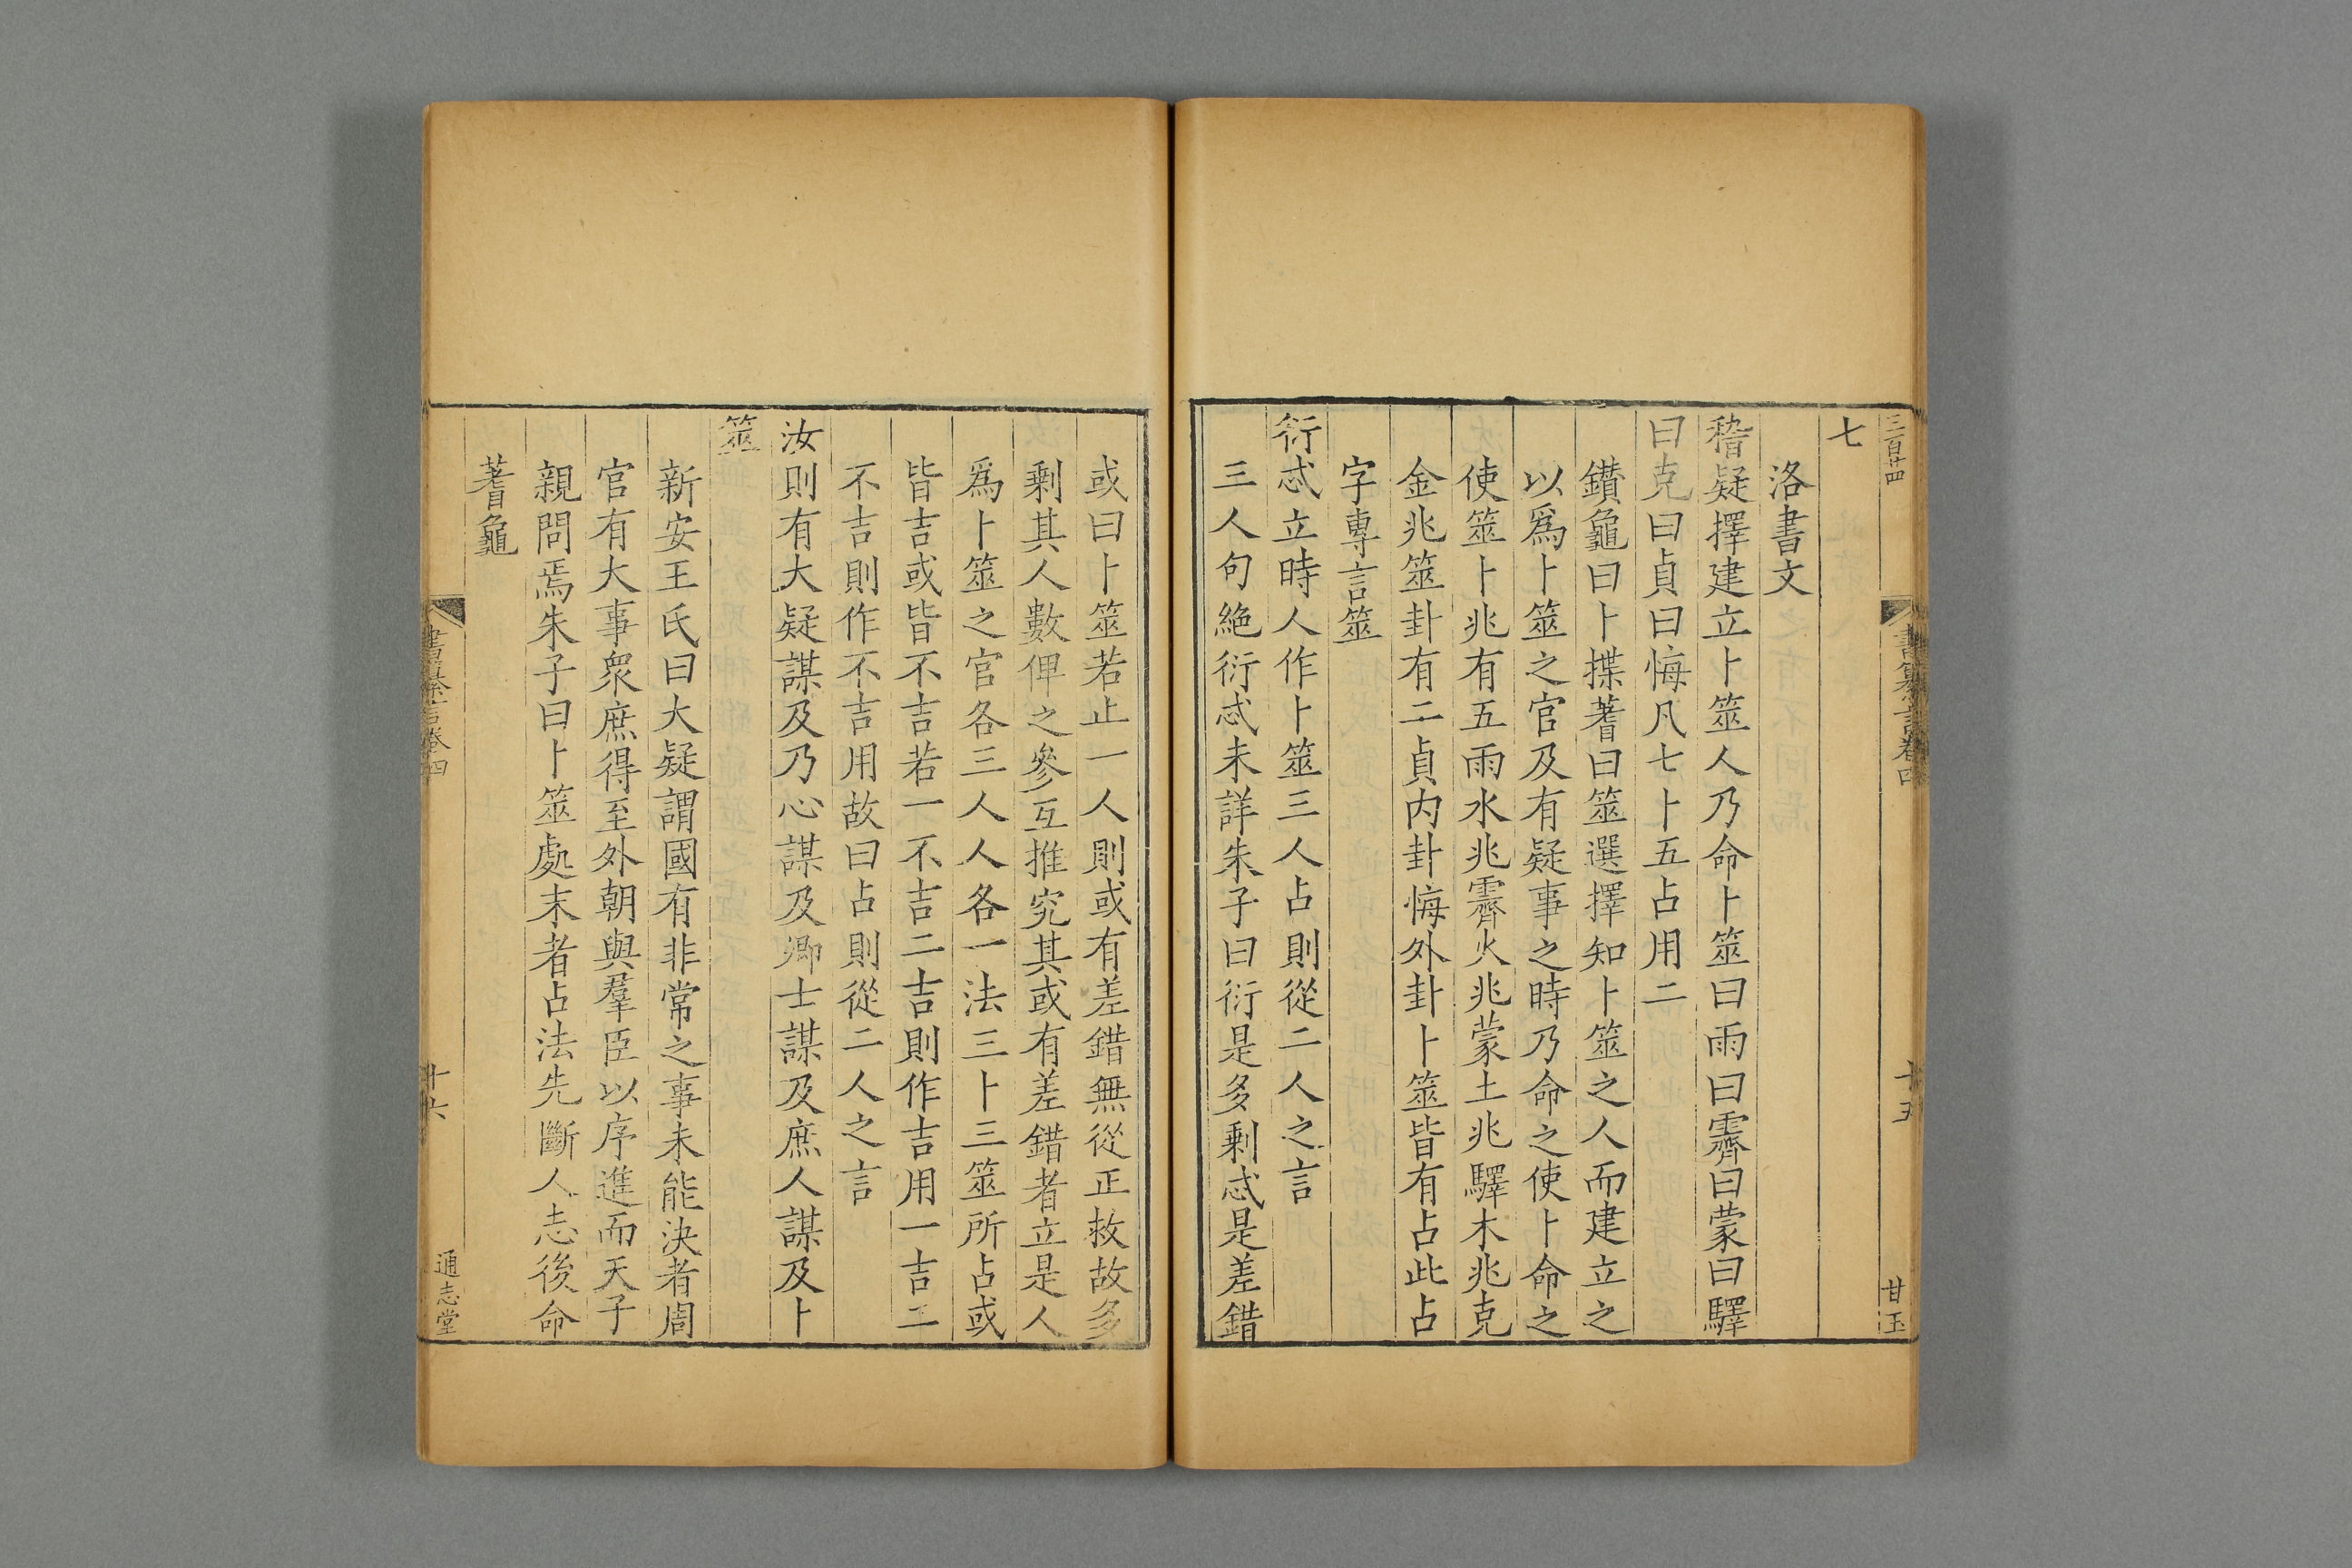 三百廿四
書纂言卷四
十五
甘玉
七
洛書文
稽疑擇建立卜筮人乃命卜筮曰雨曰霽曰蒙曰驛
曰克曰貞曰悔凡七卜五占用二
鑚龜曰卜揲蓍曰筮選擇知卜筮之人而建立之
以爲卜筮之官及有疑事之時乃命之使卜命之
使筮卜兆有五雨水兆霽火兆蒙土兆驛木兆克
金兆筮卦有二貞内卦悔外卦卜筮皆有占此占
字專言筮
衍忒立時人作卜筮三人占則從二人之言
三人句絶衍忒未詳朱子曰衍是多剩忒是差錯
或曰卜筮若止一人則或有差錯無從正救故多
剩其人數俾之參互推究其或有差錯者立是人
爲卜筮之官各三人人各一法三卜三筮所占或
皆吉或皆不吉若一不吉二吉則作吉用一吉二
不吉則作不吉用故曰占則從二人之言
汝則有大疑謀及乃心謀及卿士謀及庶人謀及卜
筮
新安王氏曰大疑謂國有非常之事未能決者周
官有大事衆庶得至外朝與羣臣以序進而天子
親問焉朱子曰卜筮處末者占法先斷人志後命
蓍龜
書纂言卷四
十六
通志堂